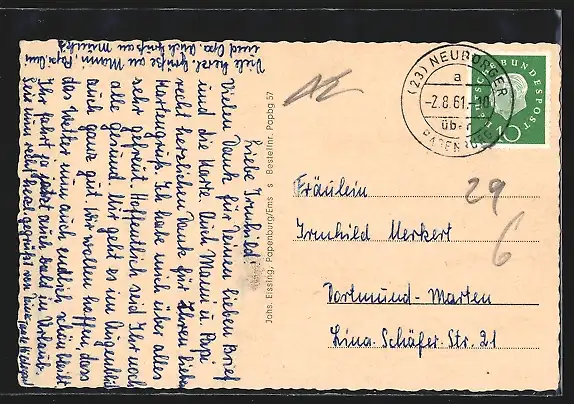 Liebe Irmhild!
Vielen Dank für Deinen lieben Brief
und die Karte. Auch Mami u. Papi
recht herzlichen Dank für Ihren lieben
Kartengruß. Ich habe mich über alles
sehr gefreut. Hoffentlich seid Ihr noch
alle gesund. Mir geht es im Augenblick
auch ganz gut. Wir wollen hoffen, dass
das Wetter nun auch endlich schön bleibt
Ihr fahrt ja jetzt auch bald in Urlaub.
Sei nun recht herzl. gegrüßt von
Viele herzl. Grüße an Mami, Papi, Oma
und Opa auch Grüße von
Johs. Eissing, Papenburg/Ems s Bestellnr. Papbg 57
(23) NEUBÖRGER
a
-2.8.61.-10
üb.
PAPENBURG
DEUTSCHE BUNDESPOST
10
29
6
Fräulein
Irmhild Merkert
Dortmund-Marten
Lina-Schäfer-Str. 21